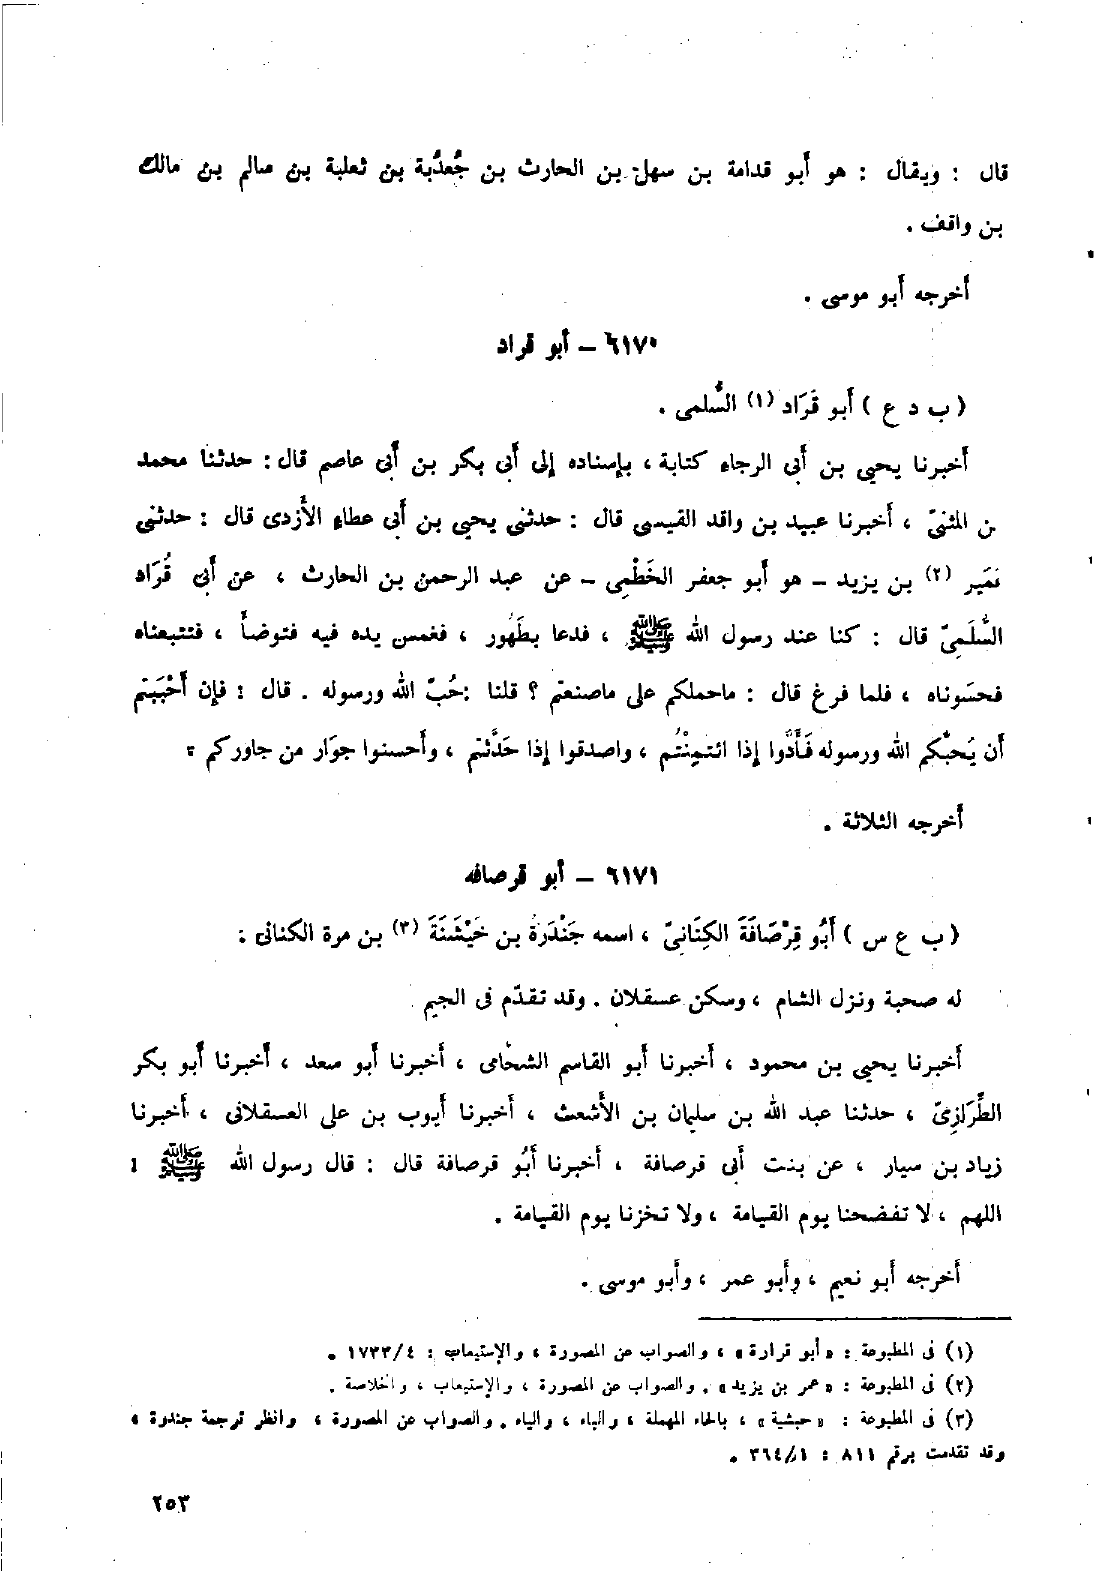 قال : ويقال : هو أبو قدامة بن سهل بن الحارث بن جُعدُبة بن ثعلبة بن سالم بن مالك
بن واقف .
أخرجه أبو موسى .
٦١٧٠ – أبو قراد
( ب د ع ) أبو قَرَاد (١) السُّلمى .
أخبرنا يحيى بن أبى الرجاء كتابة ، بإسناده إلى أبى بكر بن أبى عاصم قال : حدثنا محمد
بن المثنىّ ، أخبرنا عبيد بن واقد القيسى قال : حدثنى يحيى بن أبى عطاء الأزدى قال : حدثنى
عُمَير (٢) بن يزيد – هو أبو جعفر الخَطْمِى – عن عبد الرحمن بن الحارث ، عن أبى قُرَاد
السُّلَمِىّ قال : كنا عند رسول الله ﷺ ، فدعا بطَهُور ، فغمس يده فيه فتوضأ ، فتتبعناه
فحسَوناه ، فلما فرغ قال : ماحملكم على ماصنعتم ؟ قلنا : حُبّ الله ورسوله . قال : فإن أحْبَبتم
أن يُحبَّكم الله ورسوله فَأَدُّوا إذا ائتمِنْتُم ، واصدقوا إذا حَدَّثتم ، وأحسنوا جوَار من جاوركم .
أخرجه الثلاثة .
٦١٧١ – أبو قرصافه
( ب ع س ) أَبُو قِرْصَافَةَ الكِنَانِىّ ، اسمه جَنْدَرَةُ بن خَيْشَنَةَ (٣) بن مرة الكنانى :
له صحبة ونزل الشام ، وسكن عسقلان . وقد تقدّم فى الجيم
أخبرنا يحيى بن محمود ، أخبرنا أبو القاسم الشحامى ، أخبرنا أبو سعد ، أخبرنا أبو بكر
الطِّرَازِىّ ، حدثنا عبد الله بن سليمان بن الأشعث ، أخبرنا أيوب بن على العسقلانى ، أخبرنا
زياد بن سيار ، عن بنت أبى قرصافة ، أخبرنا أبُو قرصافة قال : قال رسول الله ﷺ :
اللهم ، لا تفضحنا يوم القيامة ، ولا تخزنا يوم القيامة .
أخرجه أبو نعيم ، وأبو عمر ، وأبو موسى .
(١) فى المطبوعة : « أبو قرارة » ، والصواب عن المصورة ، والإستيعاب : ١٧٣٣/٤ .
(٢) فى المطبوعة : « عمر بن يزيد » . والصواب عن المصورة ، والإستيعاب ، والخلاصة .
(٣) فى المطبوعة : « حبشية » ، بالحاء المهملة ، والباء ، والياء . والصواب عن المصورة ، وانظر ترجمة جندرة ،
وقد تقدمت برقم ٨١١ : ٣٦٤/١ .
٢٥٣